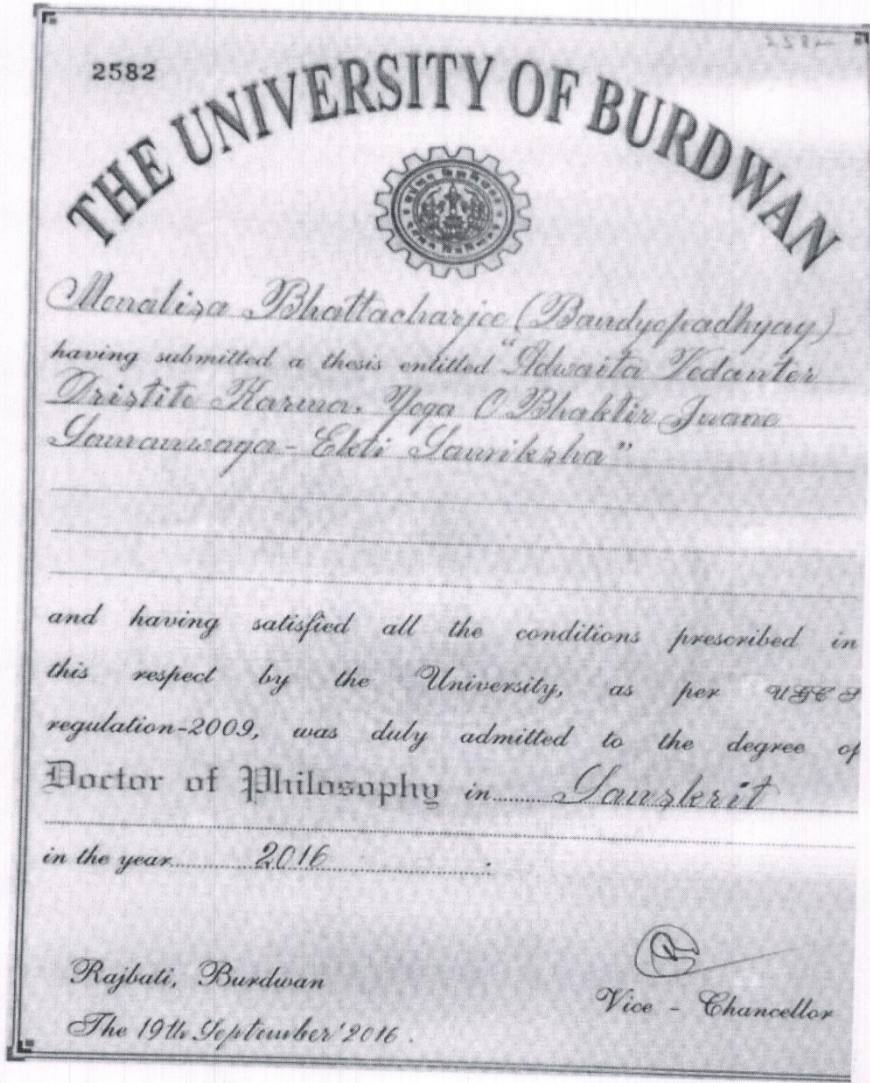 2582
THE UNIVERSITY OF BURDWAN
Monalisa Bhattacharjee (Bandyopadhyay)
having submitted a thesis entitled "Adwaita Vedanter
Dristite Karma, Yoga O Bhaktir Jnane
Samanwaya - Ekti Samiksha"
and having satisfied all the conditions prescribed in
this respect by the University, as per UGC'S
regulation-2009, was duly admitted to the degree of
Doctor of Philosophy in Sanskrit
in the year 2016
Rajbati, Burdwan
Vice - Chancellor
The 19th September' 2016.